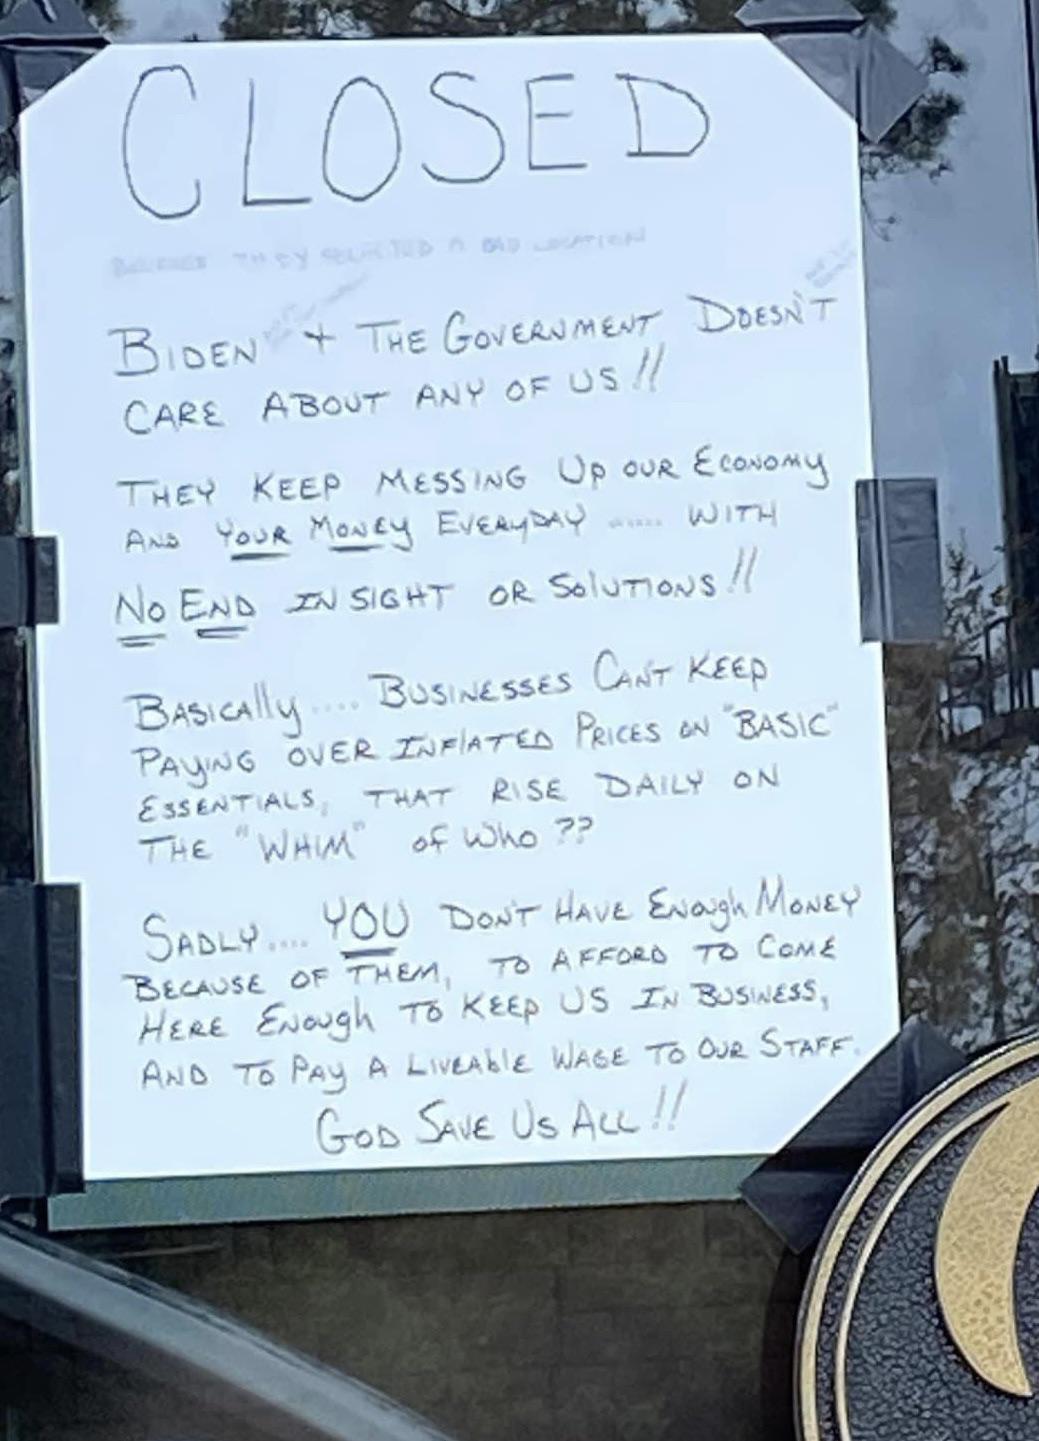 CLOSED
BECAUSE THEY SELECTED A BAD LOCATION
BIDEN + THE GOVERNMENT DOESN'T
CARE ABOUT ANY OF US!!
THEY KEEP MESSING UP OUR ECONOMY
AND YOUR MONEY EVERYDAY ..... WITH
NO END IN SIGHT OR SOLUTIONS!!
BASICAlly .... BUSINESSES CAN'T KEEP
PAYING OVER INFlATED PRICES ON "BASIC"
ESSENTIALS, THAT RISE DAILY ON
THE "WHIM" OF WHO??
SADLY.... YOU DON'T HAVE ENOugh MONEY
BECAUSE OF THEM, TO AFFORD TO COME
HERE ENOugh TO KEEP US IN BUSINESS,
AND TO PAY A LIVEABlE WAGE TO OUR STAFF.
GOD SAVE US ALL!!